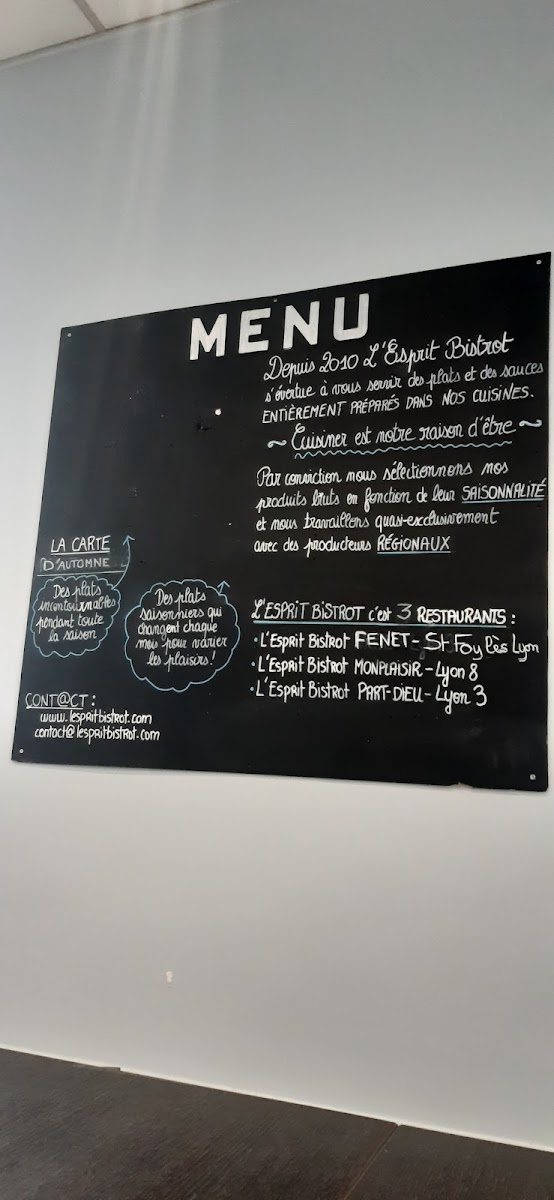 MENU
Depuis 2010 L'Esprit Bistrot
s'évertue à vous servir des plats et des sauces
ENTIÈREMENT PRÉPARÉS DANS NOS CUISINES.
~ Cuisiner est notre raison d'être ~
Par conviction nous sélectionnons nos
produits bruts en fonction de leur SAISONNALITÉ
et nous travaillons quasi-exclusivement
avec des producteurs RÉGIONAUX
LA CARTE
D'AUTOMNE
Des plats
incontournables
pendant toute
la saison
Des plats
saisonniers qui
changent chaque
mois pour varier
les plaisirs!
L'ESPRIT BISTROT c'est 3 RESTAURANTS :
• L'Esprit Bistrot FENET - St Foy Lès Lyon
• L'Esprit Bistrot MONPLAISIR - Lyon 8
• L'Esprit Bistrot PART-DIEU - Lyon 3
CONT@CT :
www.lespritbistrot.com
contact@lespritbistrot.com